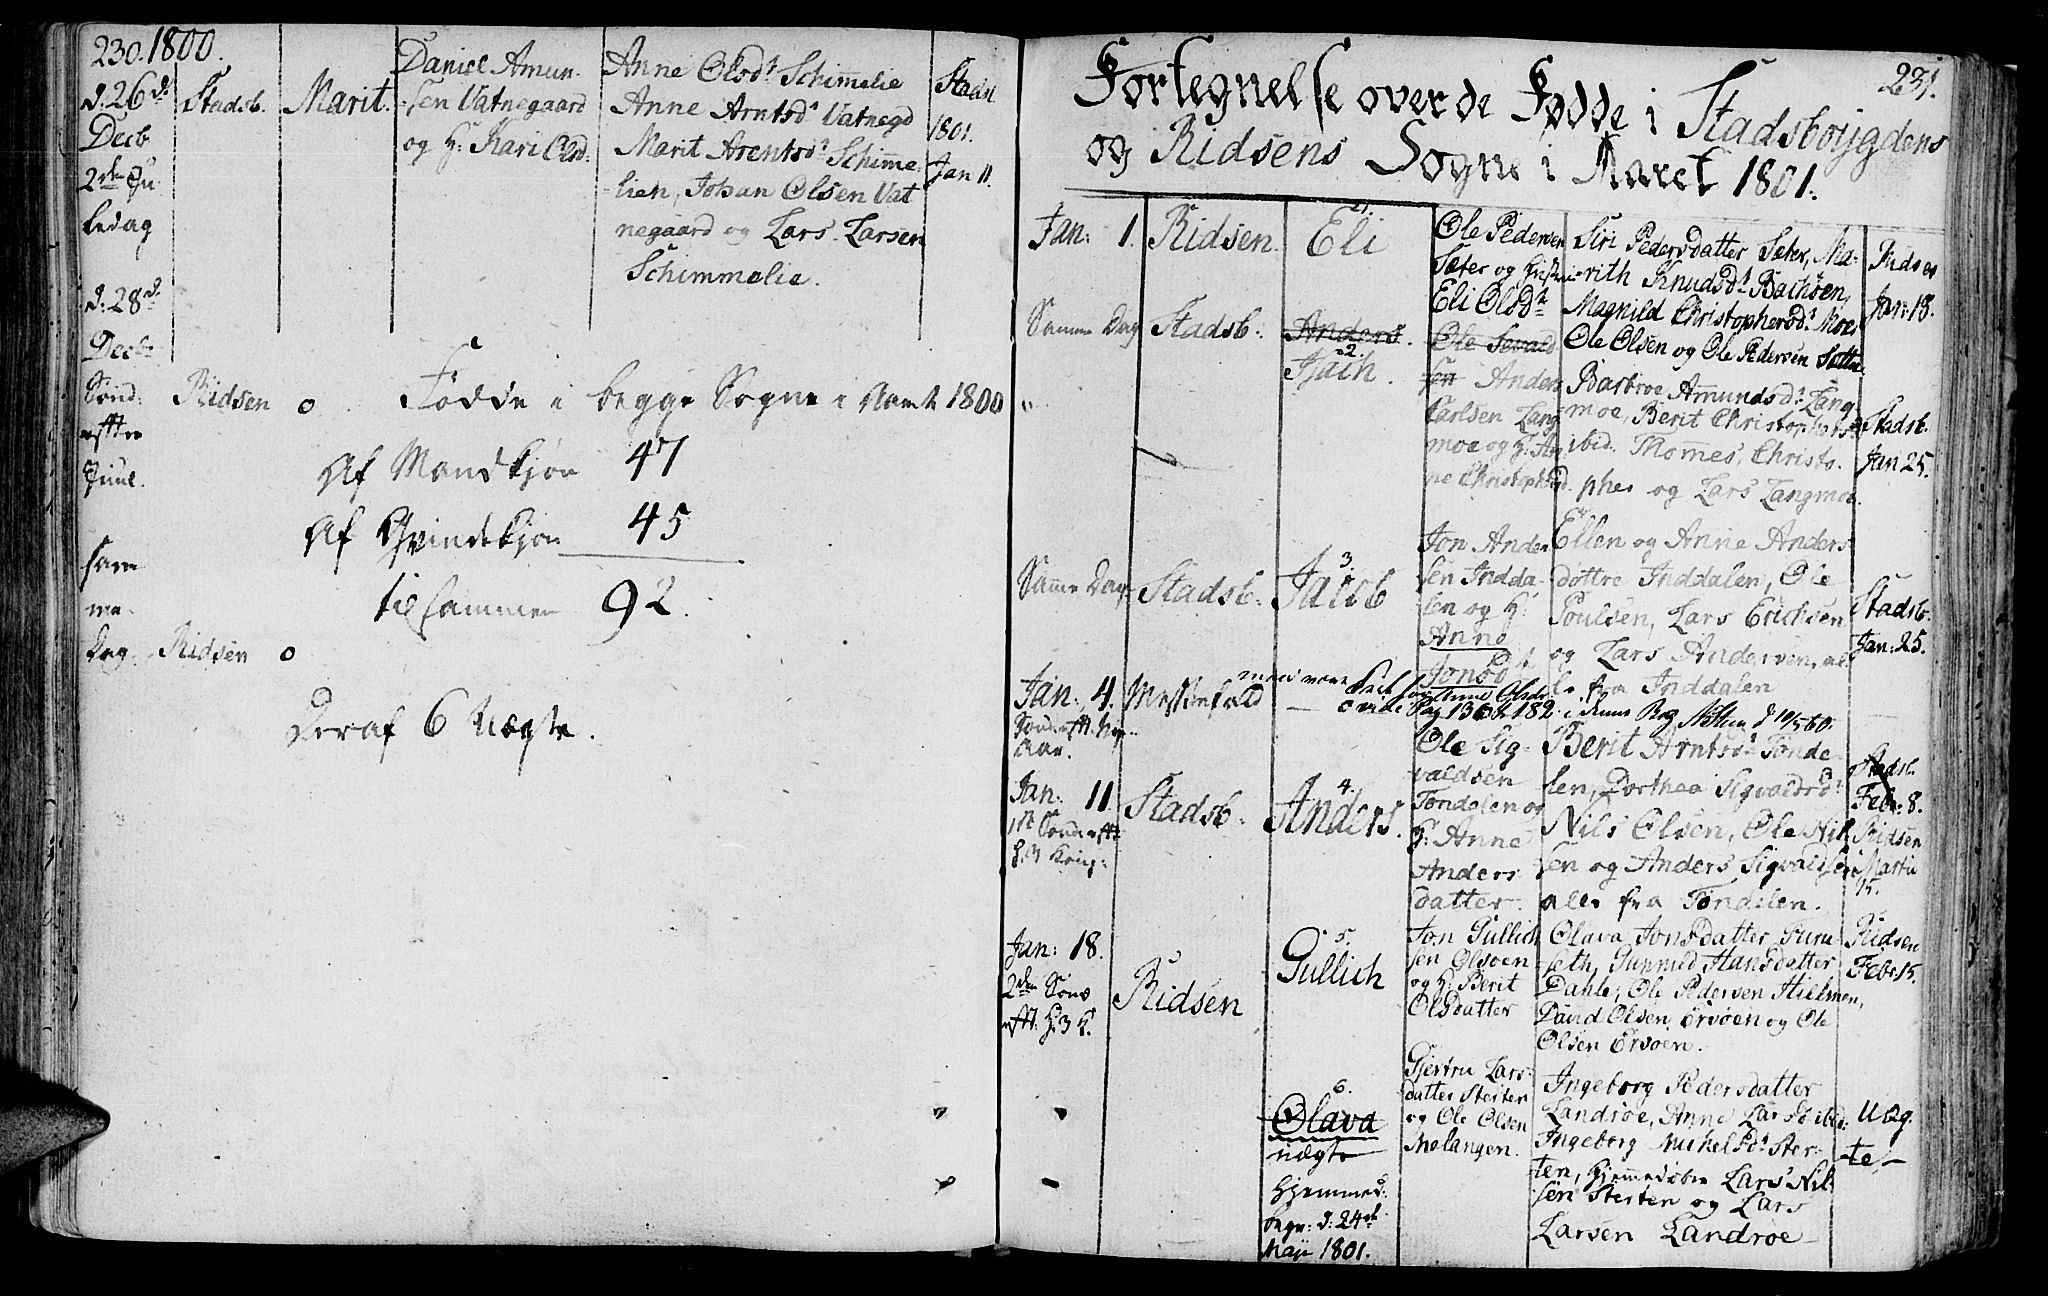 230. 1800.
d. 26d.
Decb
2den Ju
ledag
Stadsb.
Marit.
Daniel Amun
sen Vatnegaard
og H: Kari Olsd:
Anne Olsdr Schimmelie
Anne Arntsdr Vatnegd
Marit Arentsdr Schimme
lien, Johan Olsen Vat
negaard og Lars Larsen
Schimmelie.
Stadsb
1801.
Jan 11.
d. 28d.
Decbr
Sönd:
efter
Juul.
Ridsen o
sam
me
Dag
Ridsen o
Födde i begge Sogne i Aaret 1800
Af Mandkjön 47
Af Qvindekjön 45
tilsammen 92.
Deraf 6 Uægte.
231.
Fortegnelse over de Födde i Stadsboygdens
og Ridsens Sogne i Aaret 1801.
Jan: 1.
Ridsen.
1.
Eli
Ole Pedersen
Sæter og
Eli Olsdr
Siri Pedersdatter Sæter, Ma-
rith Knudsdr Bachsen,
Magnild Christophersdr Moe,
Ole Olsen og Ole Pedersen
Ridsen
Jan: 18.
Samme Dag
Stadsb.
Anders.
2.
Ole Sevald
sen Anders
Carlsen Lang
moe og H: An
ne Christophersd.
Barbroe Amundsdr Lang
moe, Berit Christophers
ibid. Thommes, Christo
pher og Lars Langmoe.
Stadsb.
Jan 25.
Samme Dag
Stadsb.
3.
Jacob
Jon Ander
sen Indda-
len og H:
Anne
Jonsdr
Ellen og Anne Anders
döttre Inddalen, Ole
Poulsen, Lars Erichsen
og Lars Andersen, al
le fra Inddalen
Stadsb.
Jan: 25.
Jan: 4.
Sönd. eft. Nyt
Aar.
Messefald
Pag 136 & 182 i denne Bog
Jan: 11
1st Sönd eft
H. 3 Kong:
Stadsb.
4.
Anders.
Ole Sig-
valdsen
Tondalen og
H: Anne
Anders
datter.
Berit Arntsdr Tonda-
len, Dorthea Sigvaldsdr
Nils Olsen, Ole Nil
sen og Anders Sigvaldsen
alle fra Tondalen.
Stadsb.
Febr: 8.
Ridsen
Martii
15.
Jan: 18.
2den Sönd
eft: H. 3 K.
Ridsen
5.
Gullich
Jon Gullich
sen Olsöen
og H: Berit
Olsdatter
Olava Jonsdatter Suru
seth, Gunnild Hansdatter
Dahle, Ole Pedersen Hielmen,
David Olsen Ervöen og Ole
Olsen Ervöen.
Ridsen
Febr 15.
6.
Olava
uægte
hjemmed:
begr: d: 24de
Maji 1801.
Gjertru Lars-
datter Sterten
og Ole Olsen
Melangen.
Ingeborg Pedersdatter
Landröe, Anne Larsd ibid:
Ingeborg Michelsdr Ster-
ten, hjemmedöbte Lars Nil
sen Sterten og Lars
Larsen Landröe
Uæg-
te